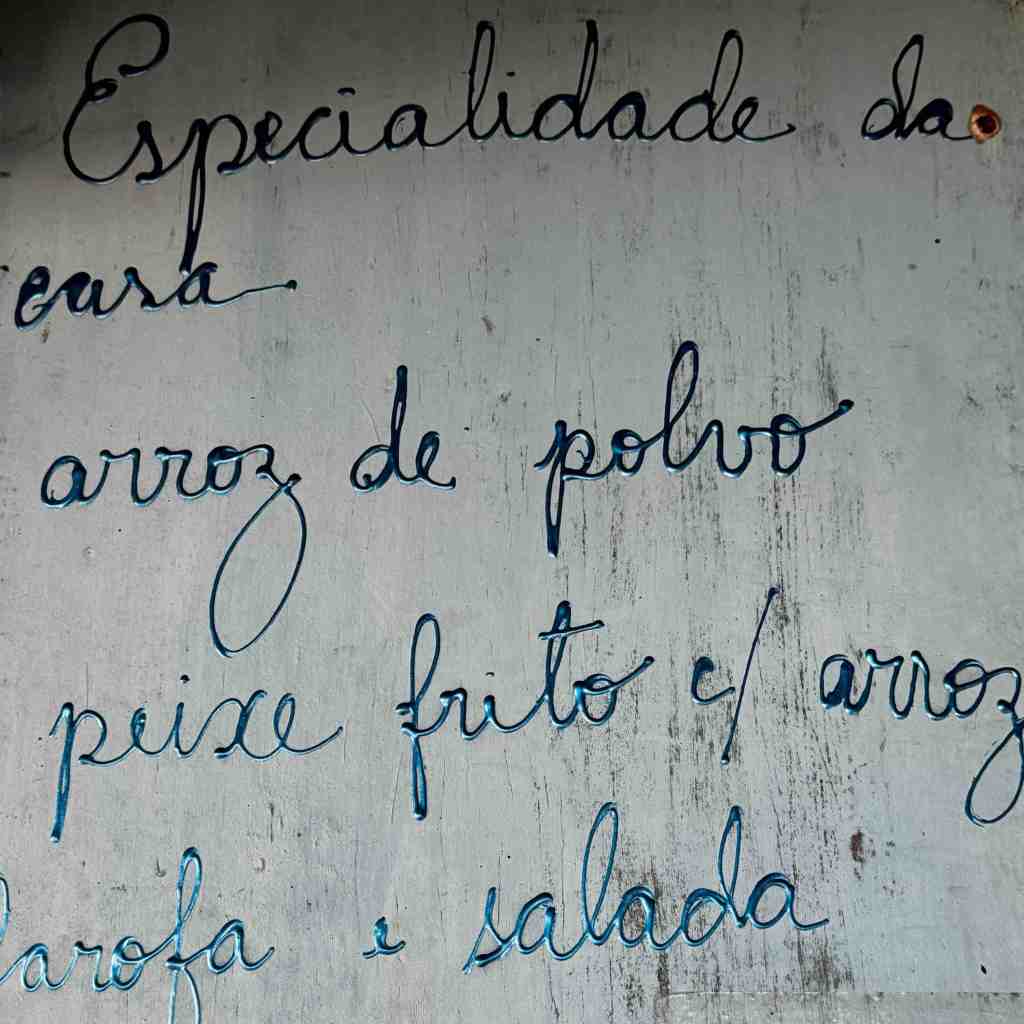 Especialidade da
casa
arroz de polvo
peixe frito c/ arroz
farofa e salada